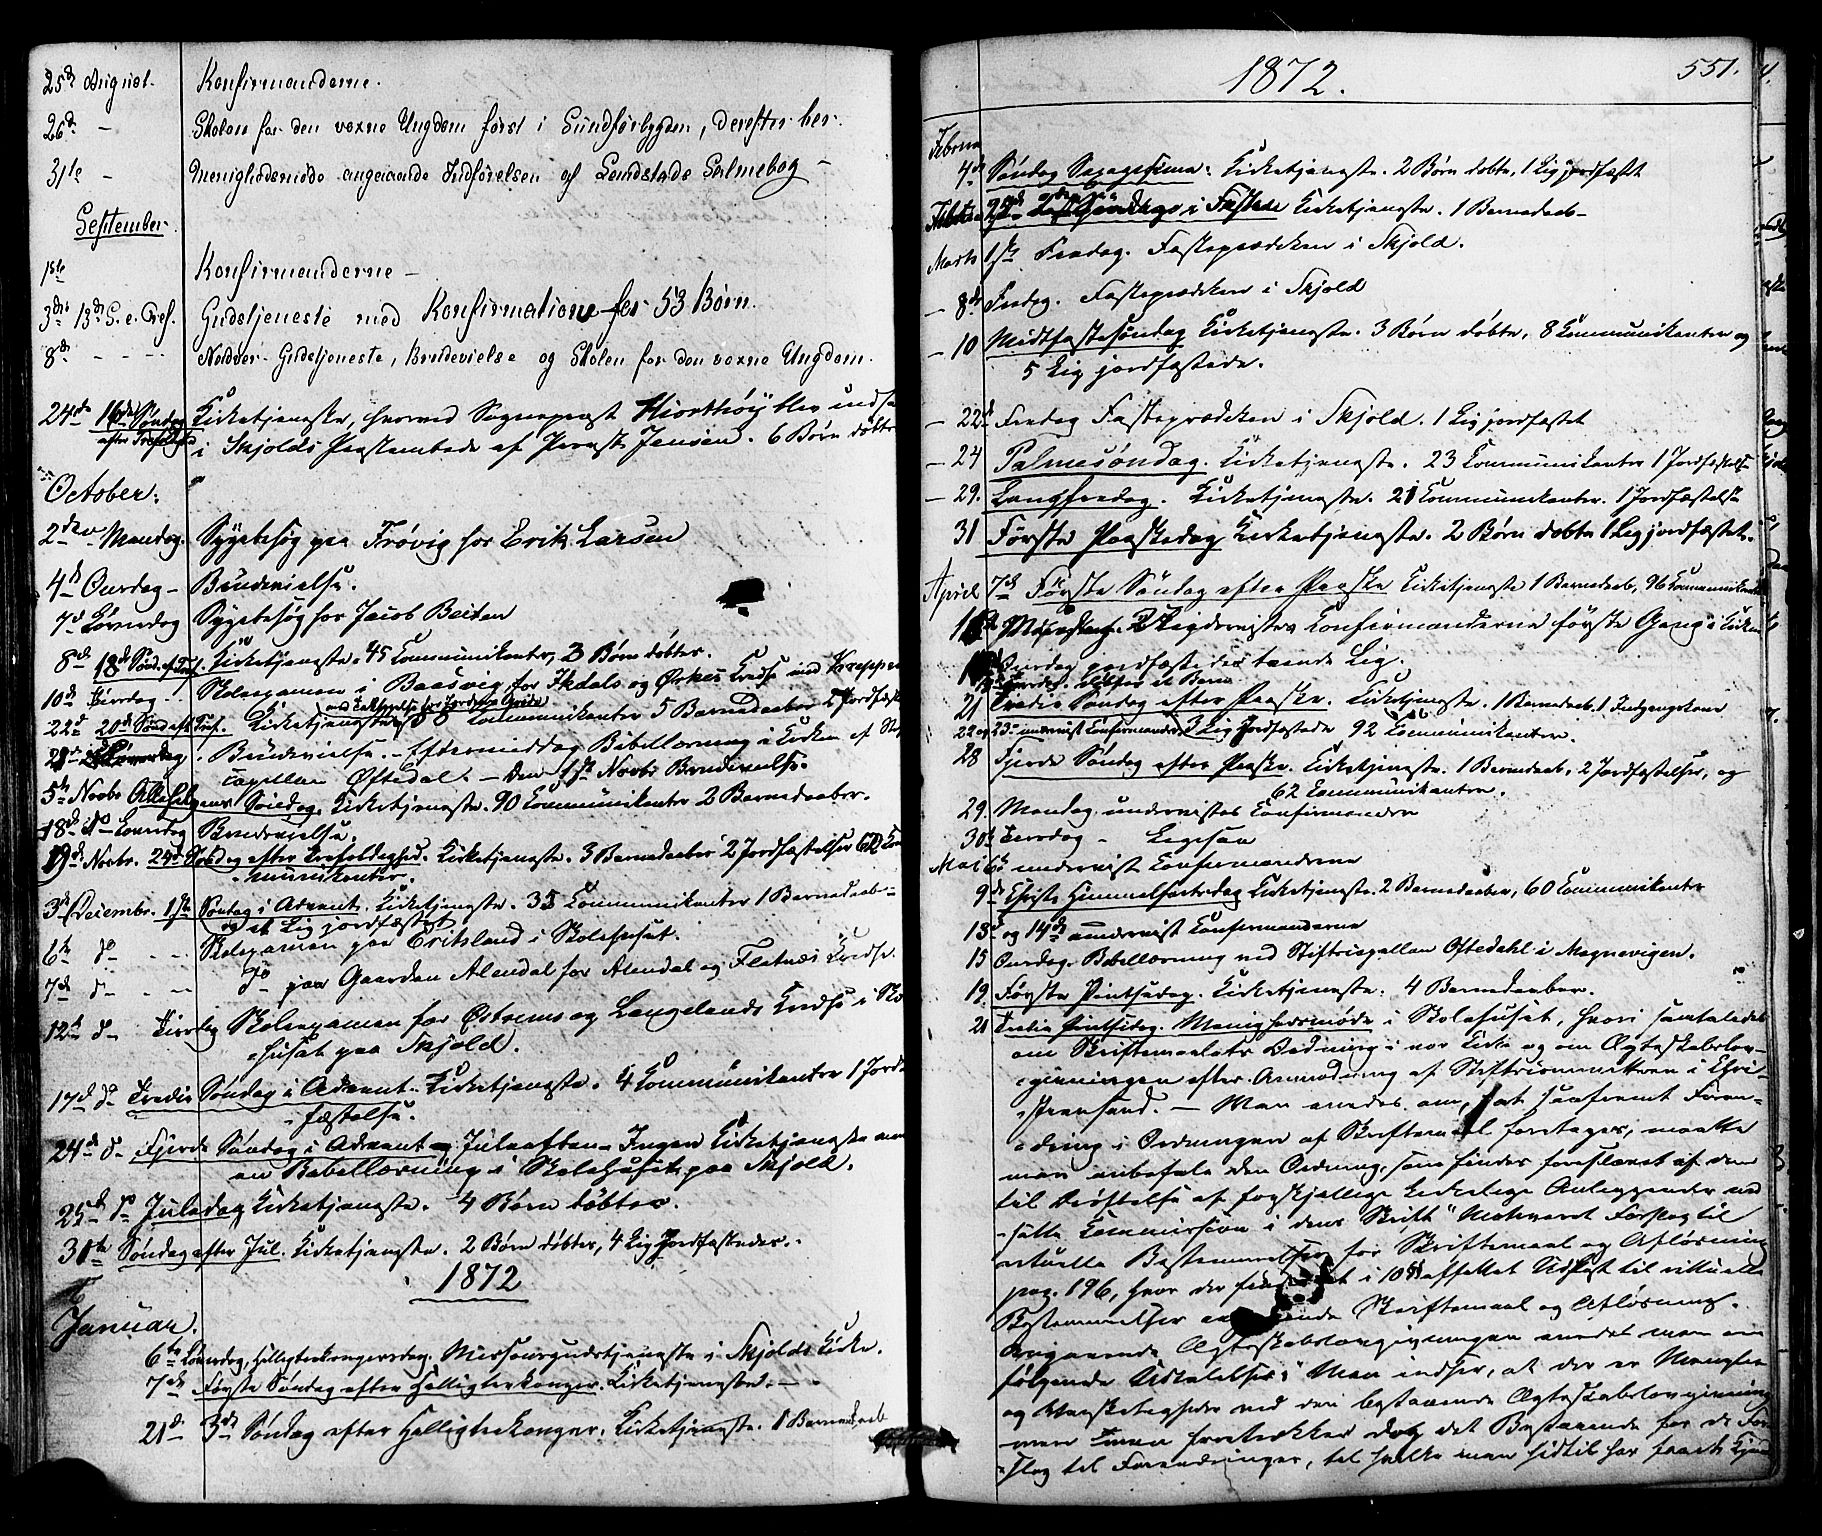 25de August. Konfirmanderne.
26de - Skolen for den voxne Ungdom først i Sundførbygden, derefter her.
31te - Menighedsmøde angaaende Indførelsen af Landstads Salmebog -
September
1ste Konfirmanderne -
3die 13de S. e. Tref. Gudstjeneste med Konfirmation for 53 Børn.
8de - - - - Nadver-Gudstjeneste, Brudevielse og Skolen for den voxne Ungdom.
24de 16de Søndag efter Trefoldighed Kirketjeneste, hvorved Sognepræst Hiorthøy blev indsa
i Skjolds Præstembede af Provst Jensen. 6 Børn døbte
October.
2den Mandag. Sygebesøg paa Frøvig hos Erik Larsen
4de Onsdag - Brudevielse.
7de Løverdag Sygebesøg hos Jacob Beiten
8de 18de Sønd. ef. Tref. Kirketjeneste. 45 Communikanter, 3 Børn døbte.
10de Tirsdag - Skoleexamen i Baasvig for Ikdals og Ørkes Kreds
22de 20de Sønd. eft. Tref. Kirketjeneste 8 Communikanter 5 Barnedaaber Jordfæst
Løverdag. Brudevielse. - Eftermiddag Bibellæsning i Kirken af St
Capellan Oftedal. - Den 1ste Novbr Brudevielse.
5te Novbr Allehelgens Søndag. Kirketjeneste. 90 Communikanter 2 Barnedaaber.
18de do Løverdag Brudevielse.
19de Novbr. 24de Søndag efter Trefoldighed. Kirketjeneste. 3 Barnedaaber 2 Jordfæstelser Com
munikanter.
3die Decembr. 1ste Søndag i Advent. Kirketjeneste. 35 Communikanter 1 Barnedaab
og et Lig jordfæstet.
6te do - - Skoleexamen paa Eritsland i Skolehuset.
7de do - - do paa Gaarden Alendal for Alendal og Flatnæs Kreds.
12te do Tirsdag Skoleexamen for Østrems og Langelands Kreds i Sko
huset paa Skjold.
17de do Tredie Søndag i Advent. Kirketjeneste. 4 Communikanter 1 Jord
fæstelse.
24de do Fjerde Søndag i Advent og Juleaften - Ingen Kirketjeneste men
en Bibellæsning i Skolehuset paa Skjold.
25de do Juledag Kirketjeneste. 4 Børn døbtes.
31te Søndag efter Jul. Kirketjeneste. 2 Børn døbte, 4 Lig Jordfæstedes.
1872
Januar.
6te Løverdag, Helligtrekongersdag. Missionsgudstjeneste i Skjolds Kirke.
7de Første Søndag efter Helligtrekonger. Kirketjeneste. -
21de 3de Søndag efter Helligtrekonger. Kirketjeneste. 1 Barnedaab
1872.
551.
Februar
4de Søndag Sexagesima: Kirketjeneste. 2 Børn døbte, 1 Lig jordfæstet
Februar 25de 2den Søndag i Fasten Kirketjeneste. 1 Barnedaab -
Marts 1ste Fredag. Fasteprædiken i Skjold.
- 8de Fredag. Fasteprædiken i Skjold
- 10 Midtfastesøndag Kirketjeneste. 3 Børn døbte, 8 Communikanter og
5 Lig jordfæstede.
- 22de Fredag Fasteprædiken i Skjold. 1 Lig jordfæstet
- 24 Palmesøndag. Kirketjeneste. 23 Communikanter 1 Jordfæstelse
- 29. Langfredag. Kirketjeneste. 21 Communikanter. 1 Jordfæstelse
31 Første Paaskedag Kirketjeneste. 2 Børn døbte 1 Lig jordfæstet.
April 7de Første Søndag efter Paaske Kirketjeneste 1 Barnedaab, 96 Communikanter
Konfirmanderne første Gang i Kirken
Onsdag jordfæstedes tvende Lig.
døbtes et Barn
21 Tredie Søndag efter Paaske. Kirketjeneste. 1 Barnedaab. 1 Indgangskone
22 og 23 undervist Confirmander 3 Lig Jordfæstede 92 Communikanter.
28 Fjerde Søndag efter Paaske. Kirketjeneste. 1 Barnedaab, 2 Jordfæstelser, og
62 Communikanter.
29. Mandag undervistes Confirmander
30te Tirsdag - Ligesaa
Mai 6te undervist Confirmanderne
9de Christi Himmelfartsdag Kirketjeneste. 2 Barnedaaber, 60 Communikanter
13de og 14de undervist Confirmanderne
15 Onsdag. Bibellæsning ved Stiftscapellan Oftedahl i Magnevigen.
19. Første Pintsedag. Kirketjeneste. 4 Barnedaaber.
21 Tredie Pintsedag. Menighedsmøde i Skolehuset, hvori samtaledes
om Skriftemaalets Ordning i vor Kirke og om Ægteskabslov-
givningen efter Anmodning af Stiftscommitteen i Chri-
stiansand. - Man enedes om, at saafremt Foran-
dring i Ordningen af Skriftemaal foretages, maatte
man anbefale den Ordning, som findes foreslaaet af den
til Drøftelse af forskjellige kirkelige Anliggender ned
satte Kommission i dens Skrift "Motiveret Forslag til
rituelle Bestemmelser for Skriftemaal og Afløsning
pag. 196, hvor der findes et i 10 § affattet Udkast til rituelle
Bestemmelser angaaende Skriftemaal og Afløsning.
Angaaende Ægteskabslovgivningen enedes man om
følgende Udtalelse: "Man indser, at der er Mangler
og Vanskeligheder ved den bestaaende Ægteskabslovgivning
men foretrækker dog det Bestaaende for de For
slag til Forandringer, til hvilke man hidtil har faaet Kjend